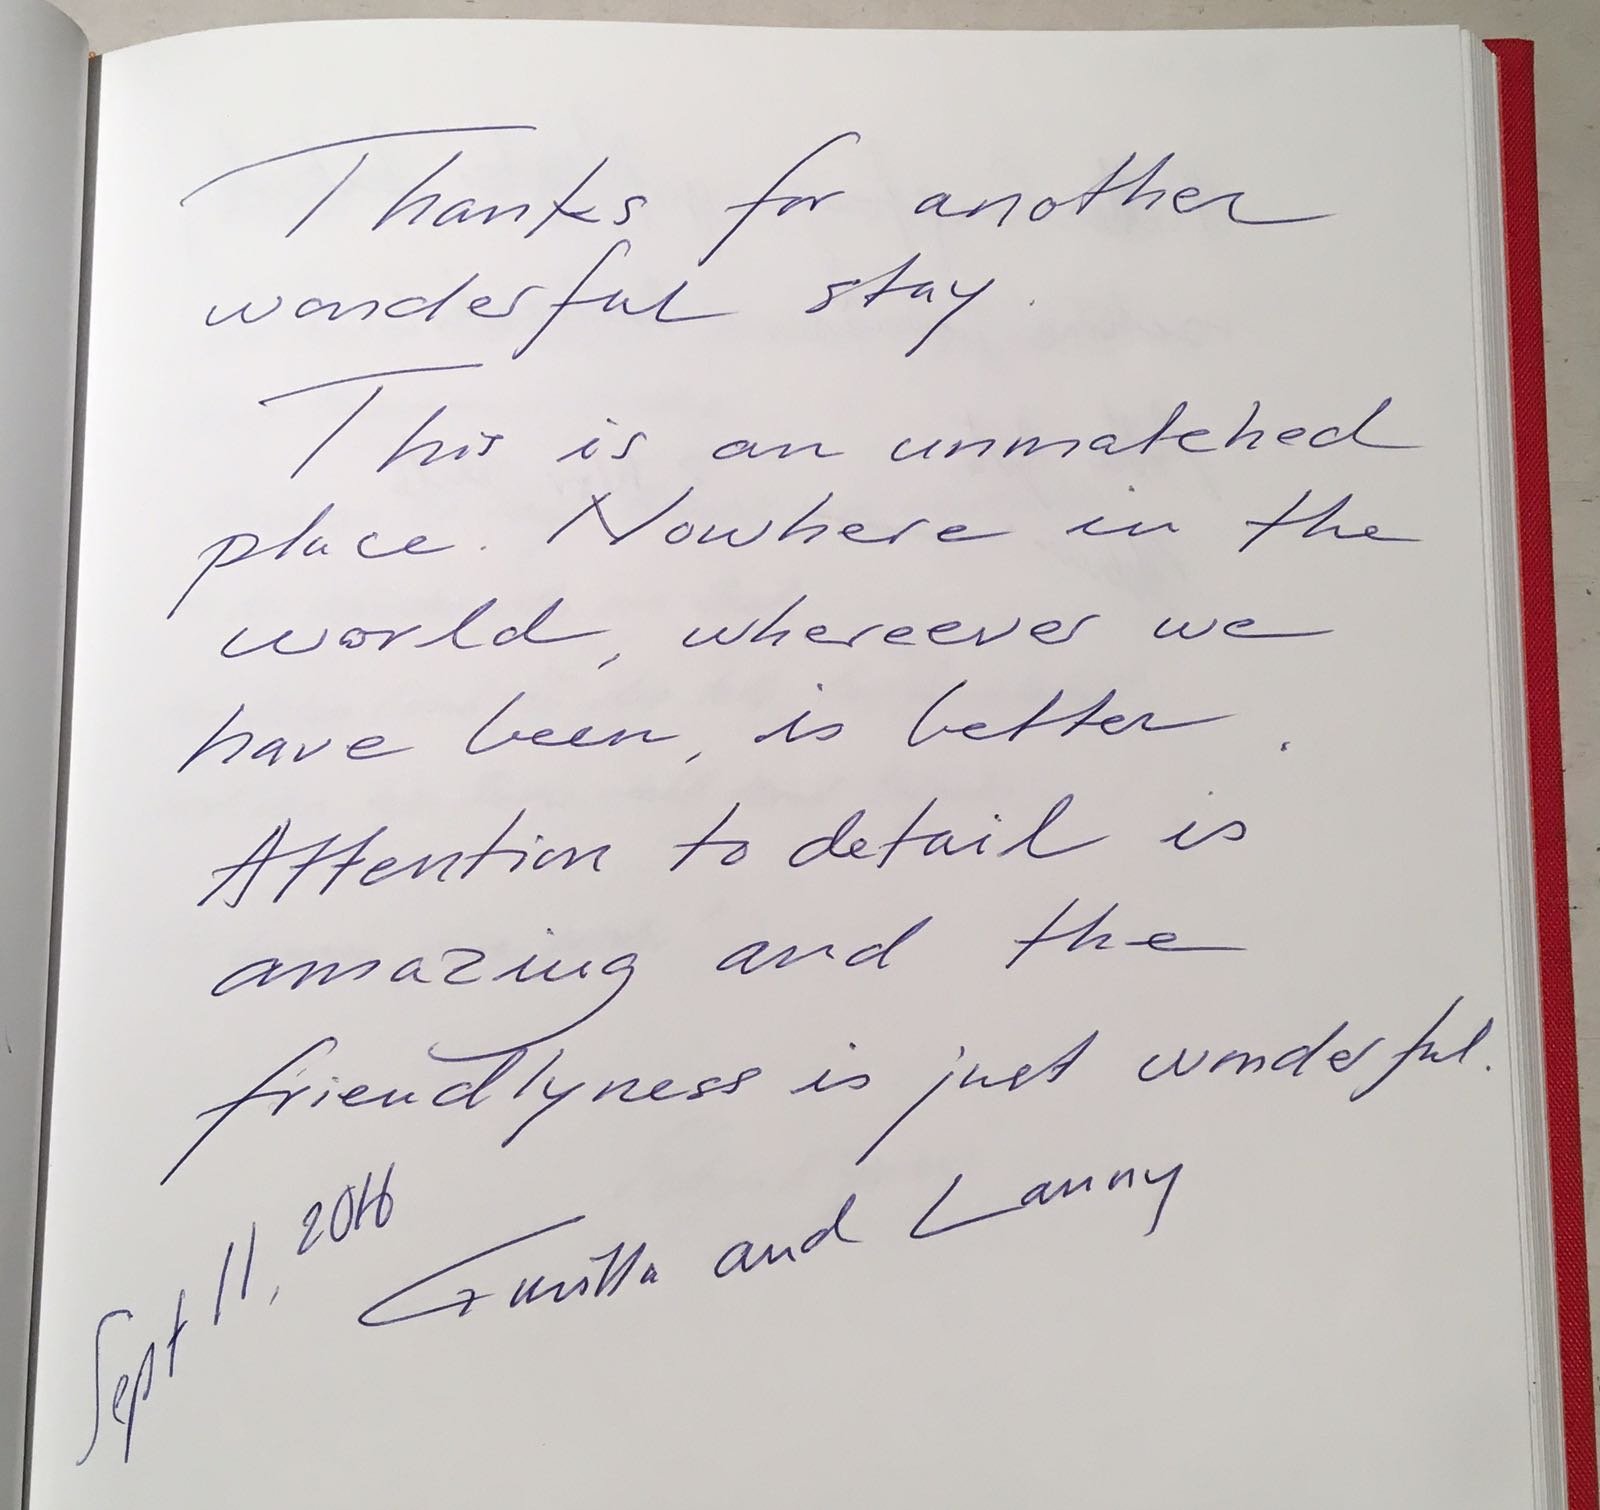 Thanks for another
wonderful stay.
This is an unmatched
place. Nowhere in the
world, whereever we
have been, is better.
Attention to detail is
amazing and the
friendlyness is just wonderful.
Sept 11, 2016
and Lanny